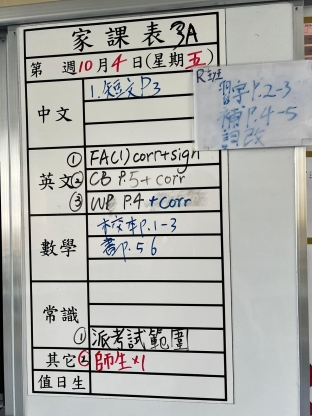 家課表 3A
第 週10月4日(星期五)
R班
習字P.2-3
P.4-5
中文
1.短文P3
英文
① FA(1) corr+sign
② CB P.5+corr
③ WP P.4+corr
數學
校本P.1-3
書P.56
常識
① 派考試範圍
其它 ② 師生×1
值日生